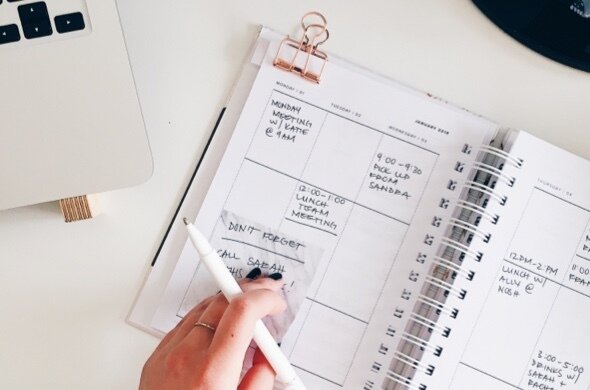 MONDAY / 01
TUESDAY / 02
WEDNESDAY / 03
JANUARY 2018
THURSDAY / 04
MONDAY
MEETING
W/ KATIE
@ 9AM
9:00-9:30
PICK UP
FROM
SANDRA
12:00-1:00
LUNCH
TEAM
MEETING
DON'T FORGET
CALL SARAH
THIS
!
12PM-2PM
LUNCH W/
ALLY @
NOSH
3:00-5:00
DRINKS W/
SARAH +